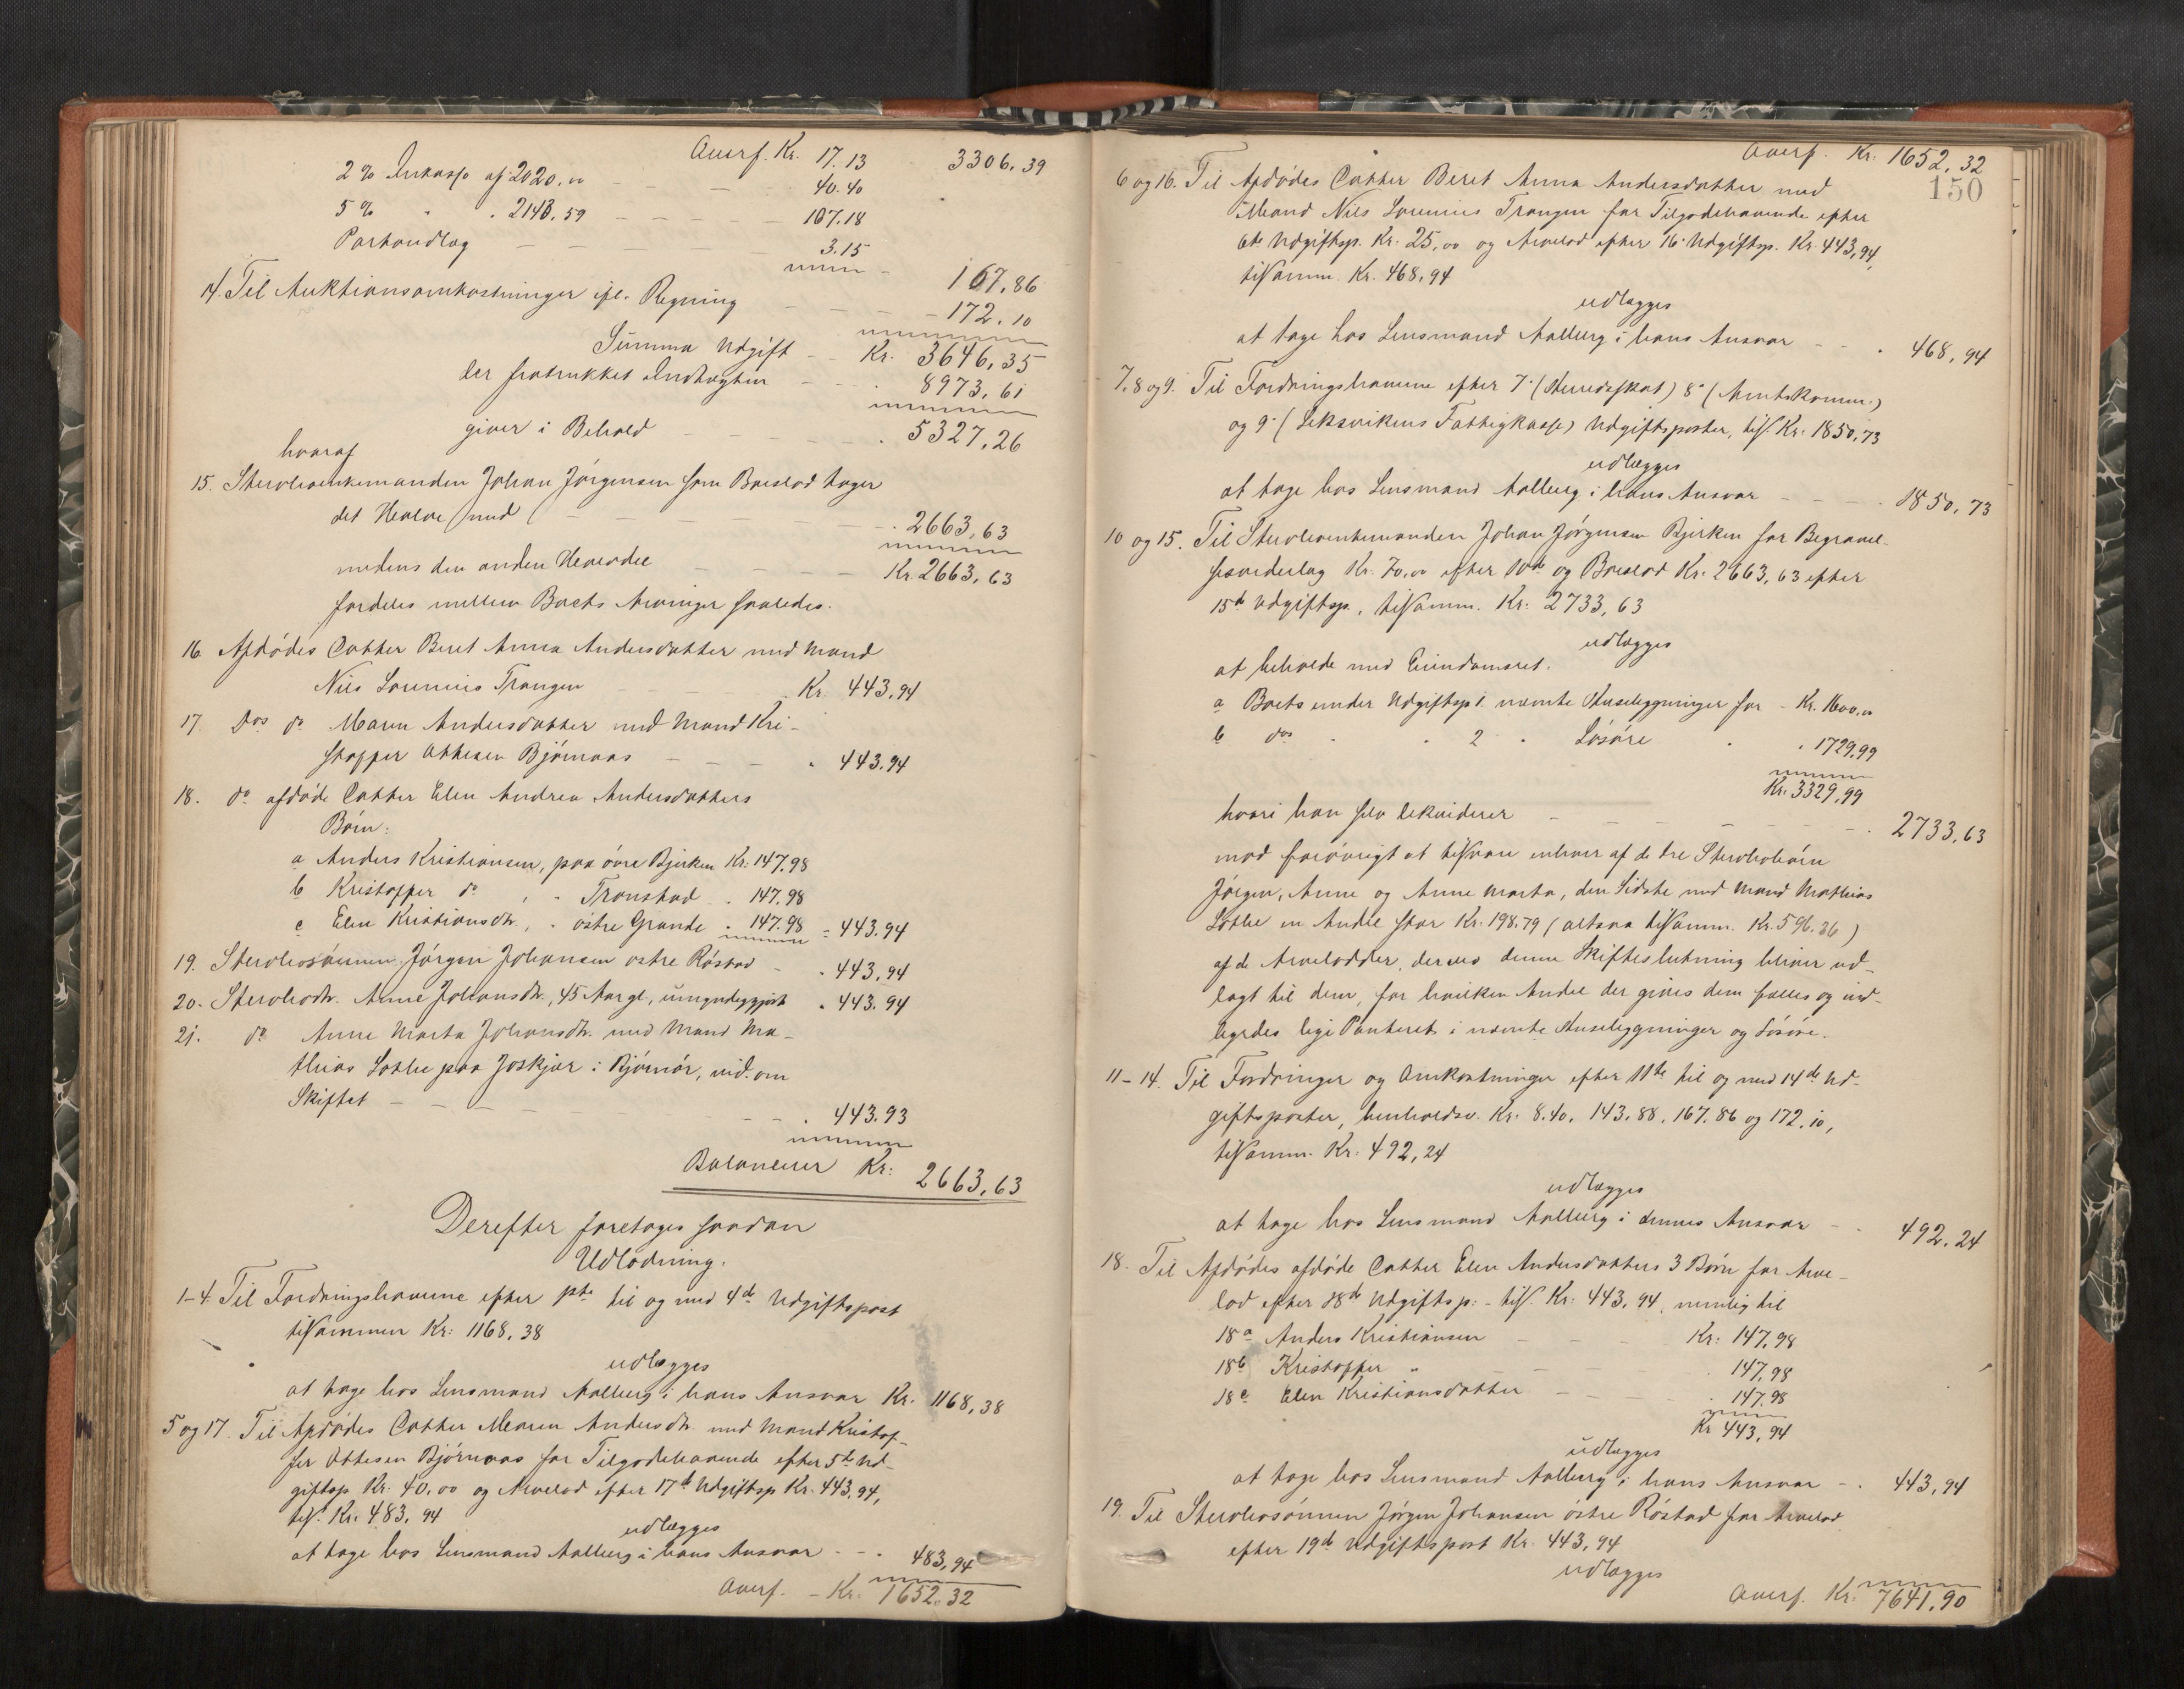 Overf. Kr. 17.13 3306,39
2 % Inkasso af 2020,00 — — 40.40
5 % " " 2143,59 — — — — 107.18
Parhandlag — — — 3.15
167,86
14. Til Auktionsomkostninger ifl. Regning — — — 172.10
Summa Udgift — Kr. 3646,35
der fratrukket Indtægten — " 8973,61
giver i Behold — — — — " 5327,26
hvoraf
15. Stervboenkemanden Johan Jørgensen som Boeslod tager
det Halve med — — — — " 2663,63
medens den anden Halvdel — — — Kr. 2663,63
fordeles mellem Boets Arvinger saaledes.
16. Afdødes Datter Beret Anna Andersdatter med Mand
Nils Lorenius Trangen — — — Kr. 443,94
17. Dos do Maren Andersdatter med Mand Kri-
stoffer Ottesen Bjørnaas — — — " 443.94
18. do afdøde Datter Elen Andrea Andersdatters
Børn:
a Anders Kristiansen, paa øvre Bjerken Kr. 147,98
b Kristoffer do , " Tronstad " 147,98
c Elen Kristiansdtr., " østre Grande " 147.98 = 443.94
19. Stervbosønnen Jørgen Johansen østre Røstad — " 443,94
20. Stervbodtr. Anne Johansdtr., 45 Aar gl., umyndiggjort " 443.94
21. do Anne Marta Johansdtr. med Mand Ma-
thias Lothe paa Joskjær i Bjørnør, vid. om
Skiftet — — — — — " 443.93
Balancerer Kr. 2663,63
Derefter foretages saadan
Udlodning.
1-4. Til Fordringshaverne efter 1ste til og med 4de Udgiftspost
tilsammen Kr. 1168,38
udlægges
at tage hos Lensmand Aalberg i hans Ansvar Kr. 1168,38
5 og 17. Til Afdødes Datter Maren Andersdtr. med Mand Kristof-
fer Ottesen Bjørnaas for Tilgodehavende efter 5te Ud-
giftsp. Kr. 40,00 og Arvelod efter 17de Udgiftsp. Kr. 443,94,
tils. Kr. 483,94
udlægges
at tage hos Lensmand Aalberg i hans Ansvar — " 483,94
Overf. — Kr. 1652.32
Overf. Kr. 1652,32
150
6 og 16. Til Afdødes Datter Beret Anna Andersdatter med
Mand Nils Lorenius Trangen for Tilgodehavende efter
6te Udgiftsp. Kr. 25,00 og Arvelod efter 16. Udgiftsp. Kr. 443,94,
tilsamm. Kr. 468,94
udlægges
at tage hos Lensmand Aalberg i hans Ansvar — — " 468,94
7, 8 og 9. Til Fordringshaverne efter 7. (Herredsskat) 8. (Amtskomm.)
og 9. (Leksvikens Fattigkasse) Udgiftsposter, tils. Kr. 1850,73
udlægges
at tage hos Lensmand Aalberg i hans Ansvar — — " 1850,73
10 og 15. Til Stervboenkemanden Johan Jørgensen Bjerken for Begravel-
sesvederlag Kr. 70,00 efter 10de og Boeslod Kr. 2663,63 efter
15de Udgiftsp., tilsamm. Kr. 2733,63
udlægges
at beholde med Eiendomsret.
a Boets under Udgiftsp. 1. nævnte Husebygninger for — Kr. 1600,00
b dos " " 2 " Løsøre " " 1729,99
Kr. 3329,99
hvori han selv lekviderer — — — — " 2733,63
mod forøvrigt at tilsvare enhver af de tre Stervbobørn
Jørgen, Anne og Anne Marta, den Sidste med Mand Mathias
Lothe en Andel stor Kr. 198.79 (altsaa tilsamm. Kr. 596.36)
af de Arvelodder, der ved denne Skifteslutning bliver ud-
lagt til dem, for hvilken Andel der gives dem fælles og ind-
byrdes lige Panteret i nævnte Husebygninger og Løsøre.
11-14. Til Fordringer og Omkostninger efter 11te til og med 14de Ud-
giftsposter, henholdsv. Kr. 8.40, 143.88, 167.86 og 172.10,
tilsamm. Kr. 492,24
udlægges
at tage hos Lensmand Aalberg i dennes Ansvar — " 492.24
18. Til Afdødes afdøde Datter Elen Andersdatters 3 Børn for Arve-
lod efter 18de Udgiftsp. — tils. Kr. 443,94, nemlig til
18a Anders Kristiansen — — — Kr. 147,98
18b Kristoffer " — — — " 147,98
18c Elen Kristiansdatter — — — " 147.98
Kr. 443,94
udlægges
at tage hos Lensmand Aalberg i hans Ansvar — " 443,94
19. Til Stervbosønnen Jørgen Johansen østre Røstad for Arvelod
efter 19de Udgiftspost Kr. 443,94
udlægges
Overf. Kr. 7641,90